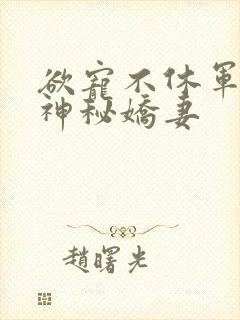 欲寵不休軍
神秘嬌妻
趙曙光